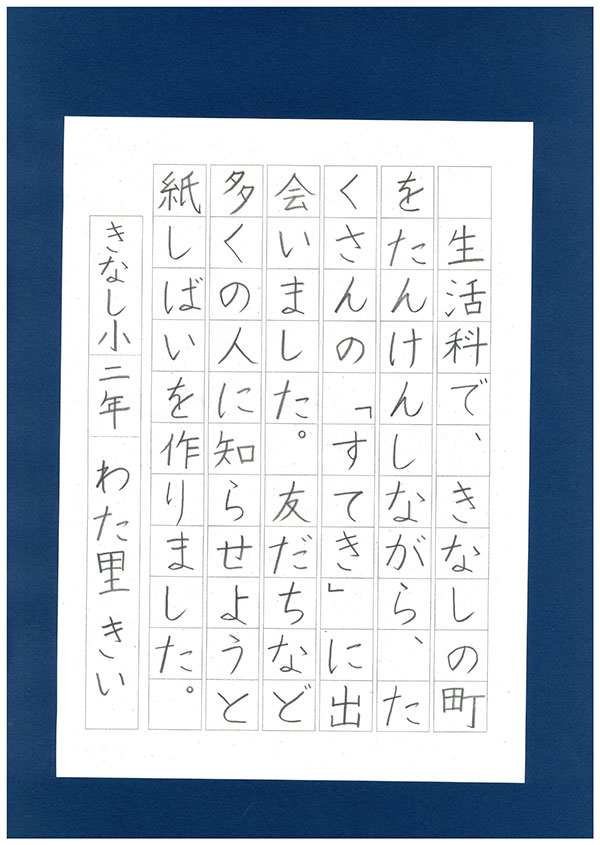 生活科で、きなしの町
をたんけんしながら、た
くさんの「すてき」に出
会いました。友だちなど
多くの人に知らせようと
紙しばいを作りました。
きなし小 二年 わた里 きい